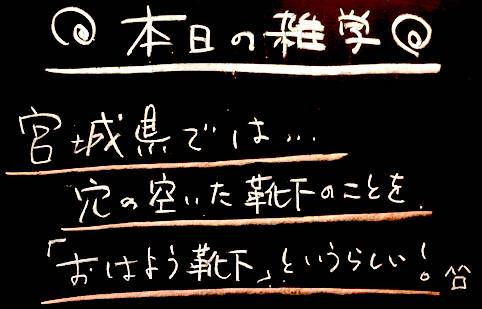 本日の雑学
宮城県では…
穴の空いた靴下のことを
「おはよう靴下」というらしい!